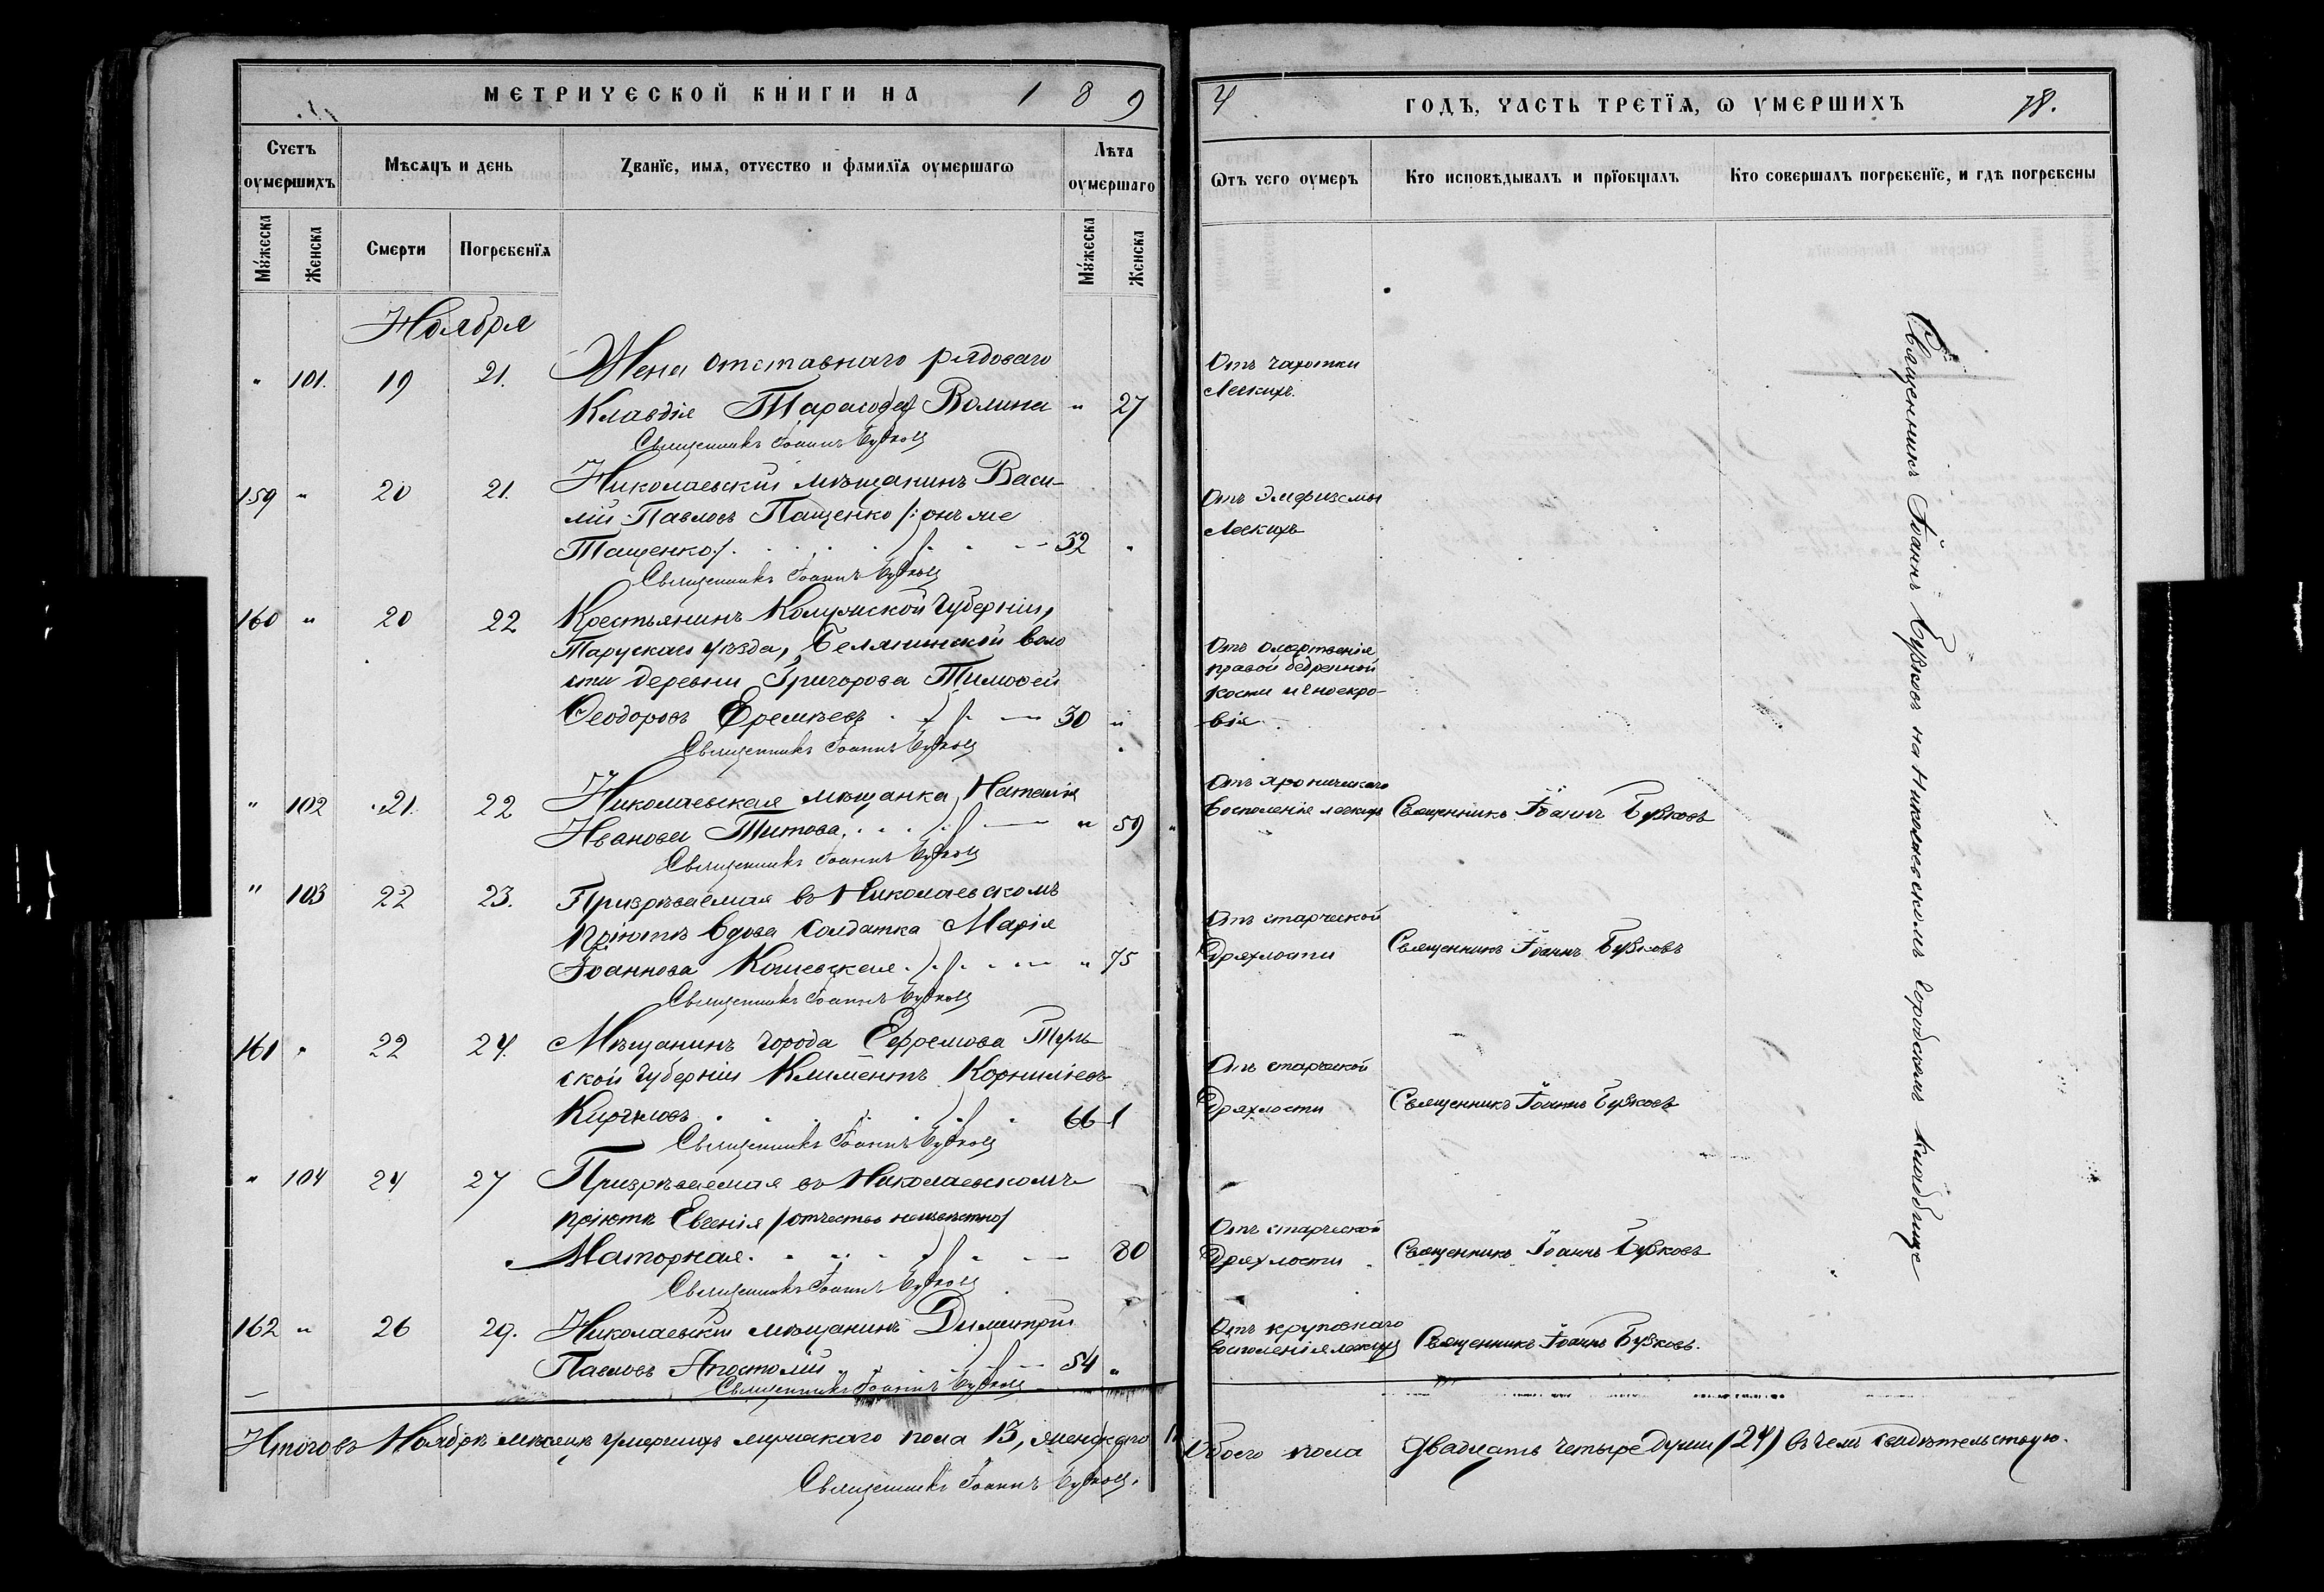 МЕТРИЧЕСКОЙ КНИГИ НА 1 8 9
4 ГОДЪ, ЧАСТЬ ТРЕТІѦ, Ѡ ОУМЕРШИХЪ 78.
Счетъ оумершихъ
Мꙋжеска
Женска
Мѣсѧцъ и день
Смерти
Погребенїѧ
Званїе, имѧ, отчество и фамилїѧ оумершагѡ
Лѣта оумершаго
Мꙋжеска
Женска
Ѡтъ чего оумеръ
Кто исповѣдывалъ и прїобщалъ
Кто совершалъ погребенїе, и гдѣ погребены
Ноября
" 101. 19 21. Жена отставнаго рядоваго
Клавдія Тарасова Волина " 27
Священникъ Іоаннъ Бузковъ
Отъ чахотки
Легкихъ.
159 " 20 21. Николаевскій мѣщанинъ Васи-
лій Павловъ Пащенко /: онъ же
Тащенко/. 32 "
Священникъ Іоаннъ Бузковъ
Отъ эмфиземы
Легкихъ
160 " 20 22 Крестьянинъ Калужской Губерніи,
Тарускаго уѣзда, Белянинской воло
сти деревни Григорова Тимофей
Ѳеодоровъ Еремѣевъ 30 "
Священникъ Іоаннъ Бузковъ
Отъ омертвенія
правой бедренной
кости и гноекро-
вія
" 102 21. 22 Николаевская мѣщанка Наталія
Иванова Титова. " 59
Священникъ Іоаннъ Бузковъ
Отъ хроническаго
Воспаленія легкихъ Священникъ Іоаннъ Бузковъ
" 103 22 23. Призрѣваемая въ Николаевскомъ
пріютѣ вдова Солдатка Марія
Іоаннова Кошевская. " 75
Священникъ Іоаннъ Бузковъ
Отъ старческой
Дряхлости Священникъ Іоаннъ Бузковъ
161 " 22 24. Мѣщанинъ города Ефремова Туль
ской Губерніи Климентъ Корниліевъ
66
Священникъ Іоаннъ Бузковъ
Отъ старческой
Дряхлости Священникъ Іоаннъ Бузковъ
" 104 24 27 Призрѣваемая въ Николаевскомъ
пріютѣ Евгенія /отчество неизвѣстно/
Маторная. 80
Священникъ Іоаннъ Бузковъ
Отъ старческой
Дряхлости Священникъ Іоаннъ Бузковъ
162 " 26 29. Николаевскій мѣщанинъ Димитрій
Павловъ Апостолій 54 "
Священникъ Іоаннъ Бузковъ
Отъ крупознаго
Воспаленія легкихъ Священникъ Іоаннъ Бузковъ.
Священникъ Іоаннъ Бузковъ на Николаевскомъ Городскомъ кладбище
Итого въ Ноябрѣ мѣсяцѣ умершихъ мужскаго пола 13, женскаго 11
Обоего пола Двадцать четыре души (24) въ чемъ свидѣтельствую.
Священникъ Іоаннъ Бузковъ.